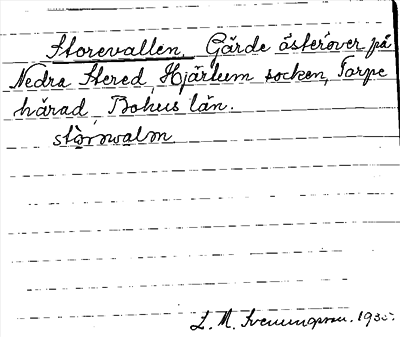 Storevallen. Gärde österöver på
Nedra Stered, Hjärtum socken, Torpe
härad, Bohus län.
L. M. Svenungsson. 1935.